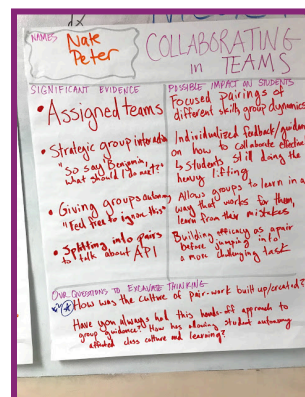 NAMES
Nate
Peter
COLLABORATING
in TEAMS
SIGNIFICANT EVIDENCE
• Assigned teams
• Strategic group interaction
"So say Benjamin,
what should I do next?"
• Giving groups autonomy
"Feel free to ignore this"
• Splitting into pairs
to talk about API
POSSIBLE IMPACT ON STUDENTS
Focused pairings of
different skills/group dynamics
Individualized feedback/guidance
on how to collaborate effective
↳ Students still doing the
heavy lifting
Allow groups to learn in a
way that works for them,
learn from their mistakes
Building efficacy as a pair
before jumping into
a more challenging task
OUR QUESTIONS TO EXCAVATE THINKING
How was the culture of pair-work built up/created?
Have you always had this hands-off approach to
group guidance? How has allowing student autonomy
affected class culture and learning?